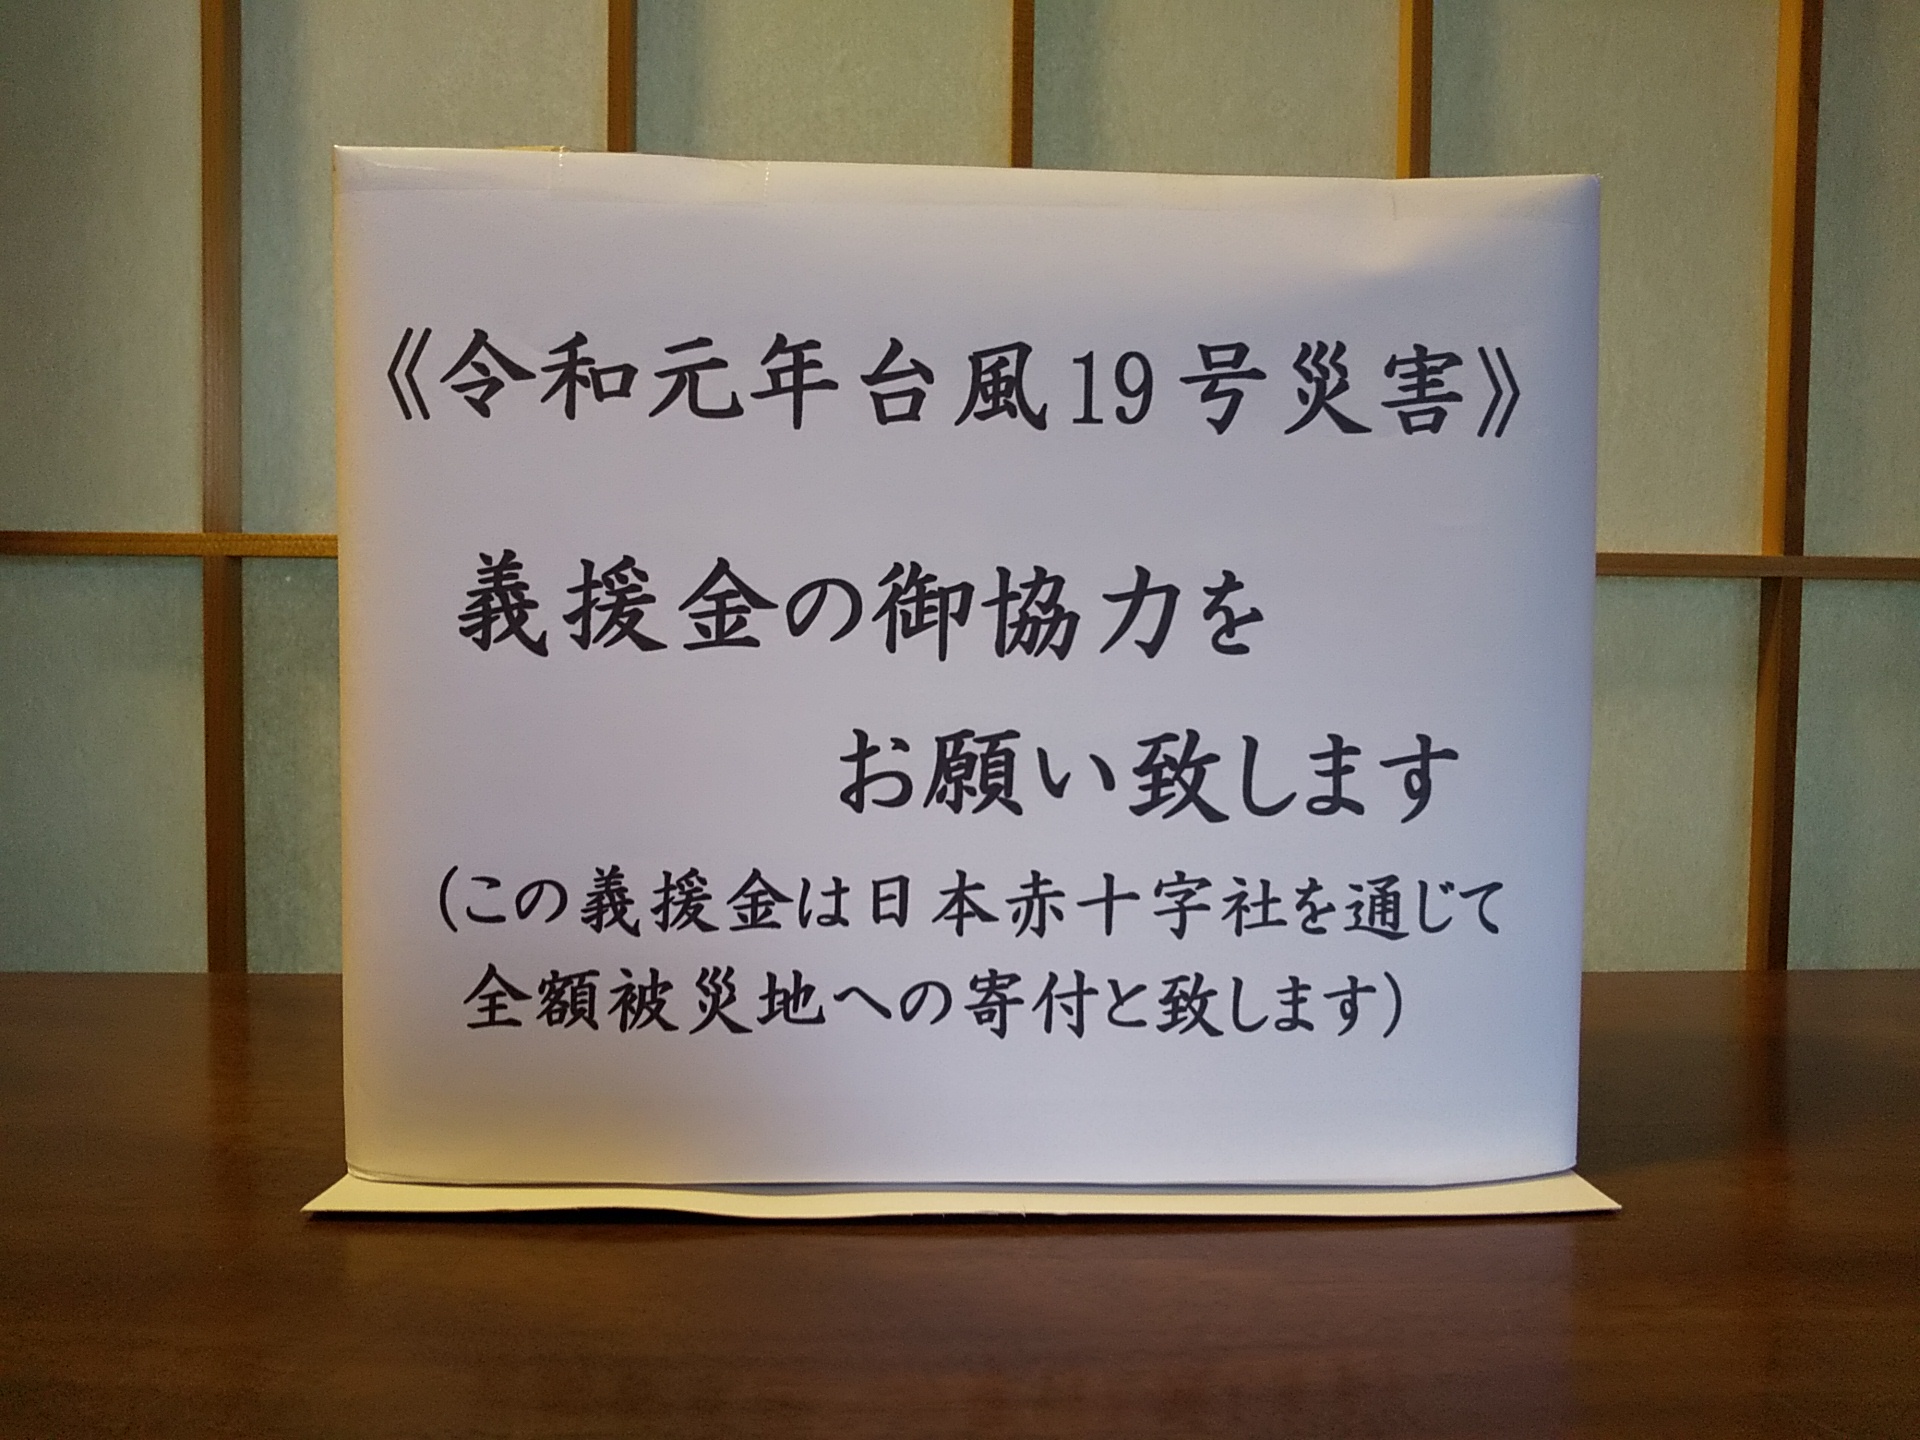 《令和元年台風19号災害》
義援金の御協力を
お願い致します
(この義援金は日本赤十字社を通じて
全額被災地への寄付と致します)